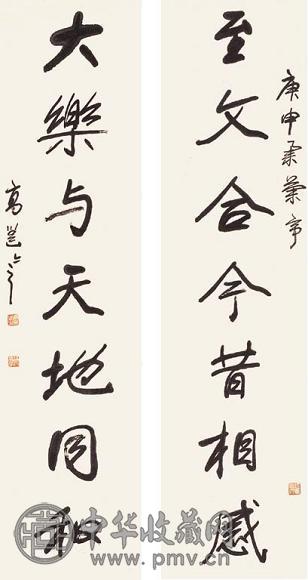 庚申
至文合今昔相感
大樂与天地同和
高邕
中华收藏网
www.pmv.cn